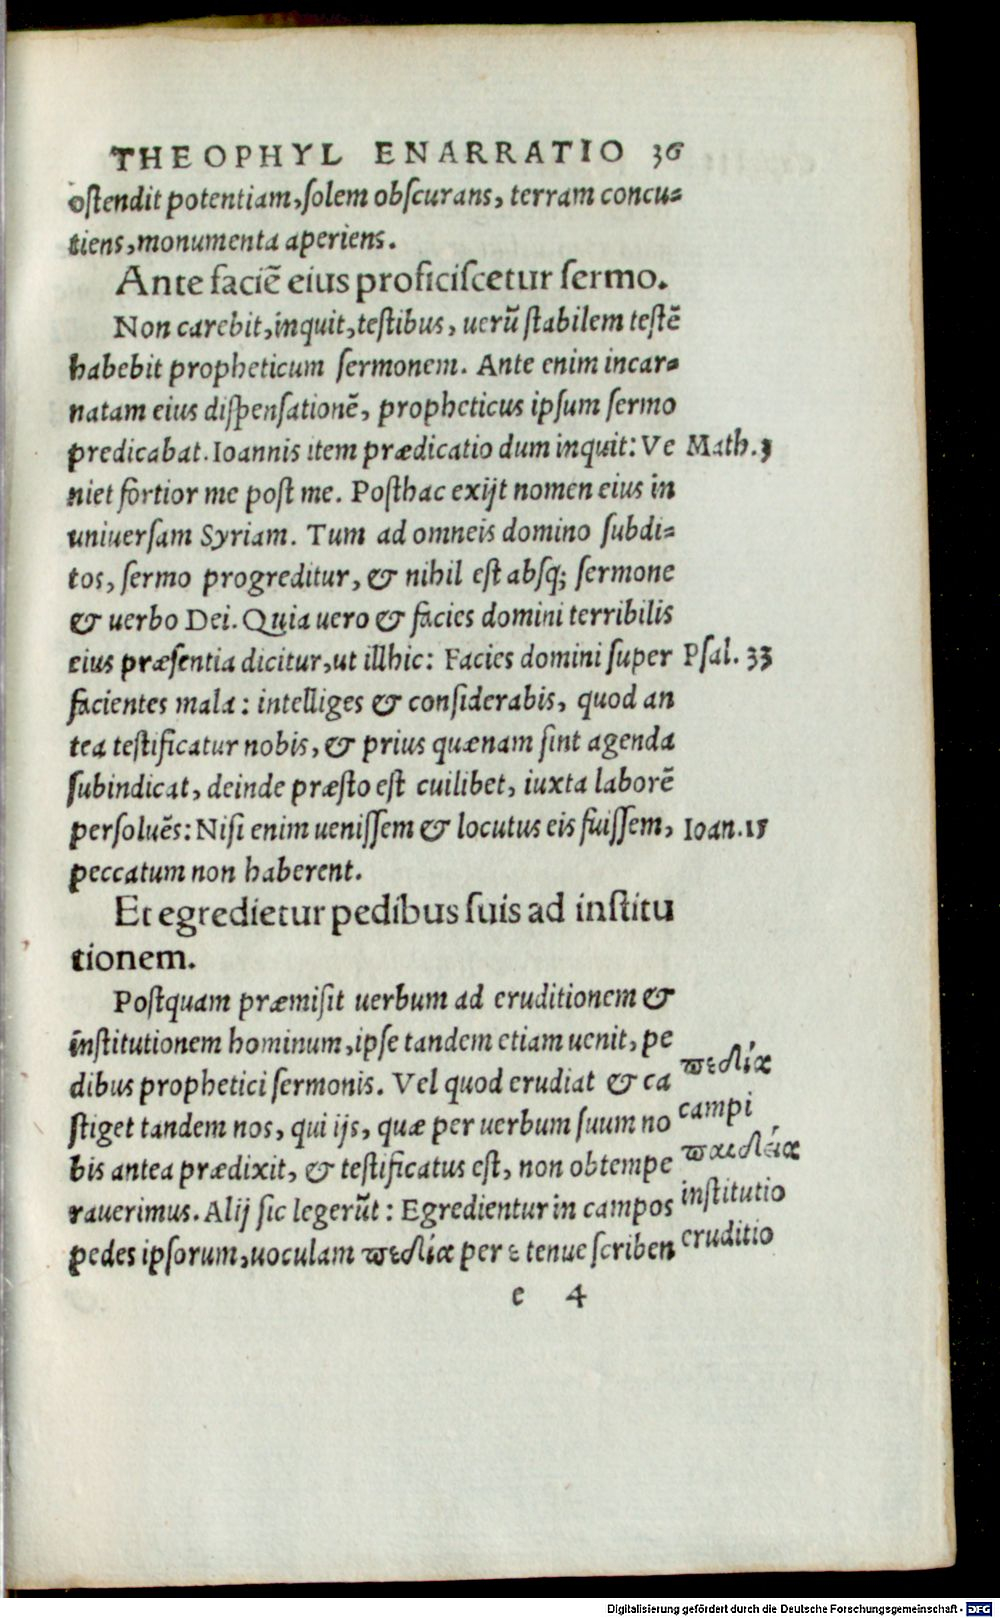 THEOPHYL ENARRATIO 36
ostendit potentiam, solem obscurans, terram concu-
tiens, monumenta aperiens.
Ante faciē eius proficiscetur sermo.
Non carebit, inquit, testibus, uerū stabilem testē
habebit propheticum sermonem. Ante enim incar-
natam eius dispensationē, propheticus ipsum sermo
predicabat. Ioannis item prædicatio dum inquit: Ve Math. 3
niet fortior me post me. Posthac exijt nomen eius in
uniuersam Syriam. Tum ad omneis domino subdi-
tos, sermo progreditur, & nihil est absq; sermone
& uerbo Dei. Quia uero & facies domini terribilis
eius præsentia dicitur, ut illhic: Facies domini super Psal. 33
facientes mala: intelliges & considerabis, quod an
tea testificatur nobis, & prius quænam sint agenda
subindicat, deinde præsto est cuilibet, iuxta laborē
persoluēs: Nisi enim uenissem & locutus eis fuissem, Ioan. 15
peccatum non haberent.
Et egredietur pedibus suis ad institu
tionem.
Postquam præmisit uerbum ad eruditionem &
institutionem hominum, ipse tandem etiam uenit, pe
dibus prophetici sermonis. Vel quod erudiat & ca
stiget tandem nos, qui ijs, quæ per uerbum suum no
bis antea prædixit, & testificatus est, non obtempe
rauerimus. Alij sic legerūt: Egredientur in campos
pedes ipsorum, uoculam πεδία per ε tenue scriben
πεδία
campi
παιδεία
institutio
eruditio
e 4
Digitalisierung gefördert durch die Deutsche Forschungsgemeinschaft - DFG